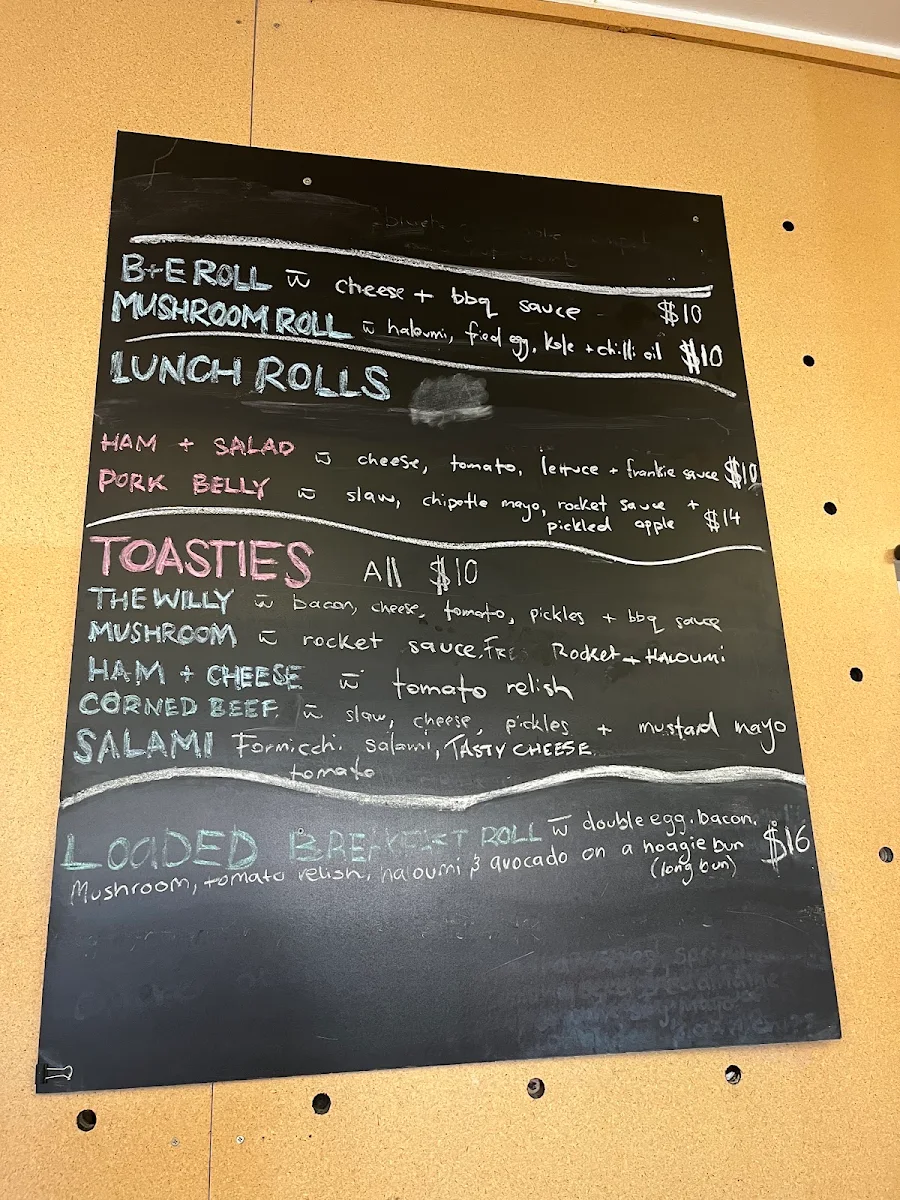 B+E ROLL w̄ cheese + bbq sauce $10
MUSHROOM ROLL w̄ haloumi, fried egg, kale + chilli oil $10
LUNCH ROLLS
HAM + SALAD w̄ cheese, tomato, lettuce + frankie sauce $10
PORK BELLY w̄ slaw, chipotle mayo, rocket sauce +
pickled apple $14
TOASTIES All $10
THE WILLY w̄ bacon, cheese, tomato, pickles + bbq sauce
MUSHROOM w̄ rocket sauce, Rocket + HALOUMI
HAM + CHEESE w̄ tomato relish
CORNED BEEF w̄ slaw, cheese, pickles + mustard mayo
SALAMI salami, TASTY CHEESE
tomato
LOADED BREAKFAST ROLL w̄ double egg, bacon, $16
Mushroom, tomato relish, haloumi & avocado on a hoagie bun
(long bun)